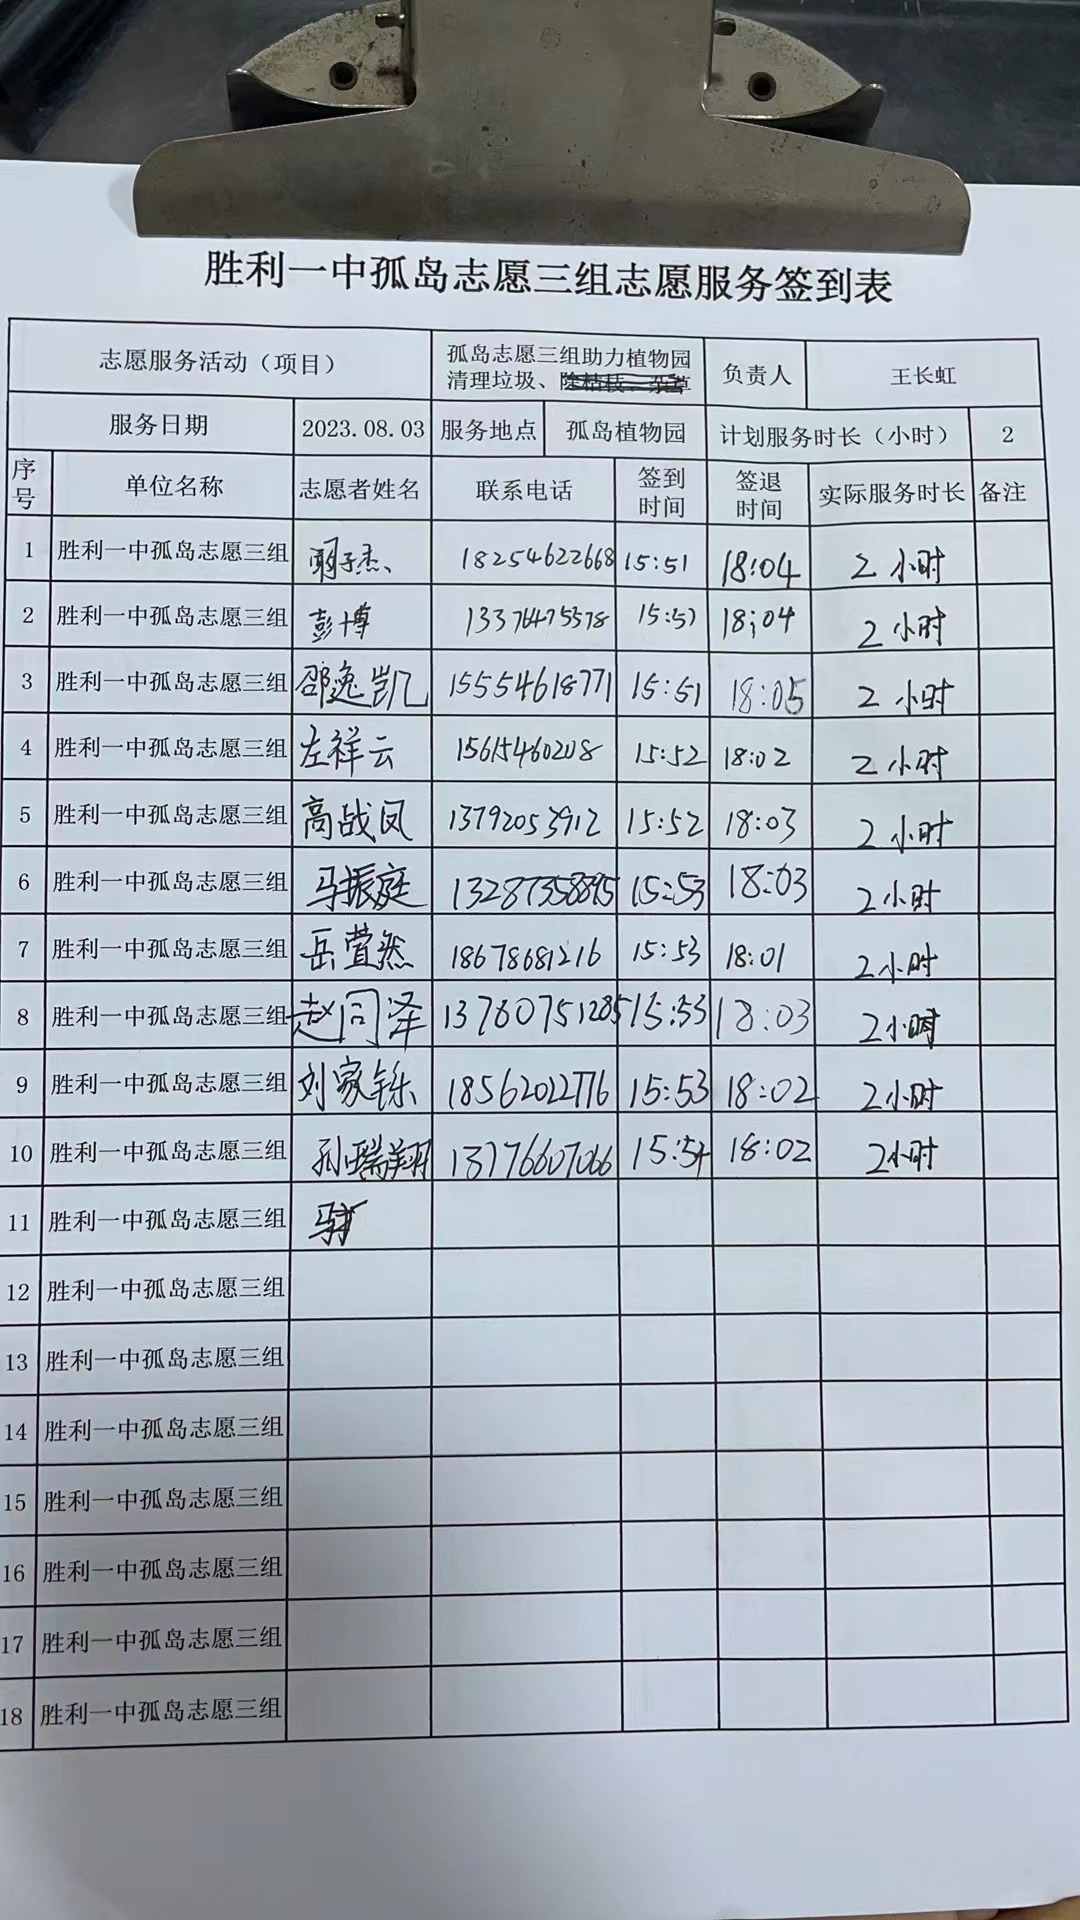 胜利一中孤岛志愿三组志愿服务签到表
志愿服务活动（项目） 孤岛志愿三组助力植物园清理垃圾、除枯枝、杂草 负责人 王长虹
服务日期 2023.08.03 服务地点 孤岛植物园 计划服务时长（小时） 2
序号 单位名称 志愿者姓名 联系电话 签到时间 签退时间 实际服务时长 备注
1 胜利一中孤岛志愿三组 18254622668 15:51 18:04 2小时
2 胜利一中孤岛志愿三组 彭博 13376475578 15:51 18:04 2小时
3 胜利一中孤岛志愿三组 邵逸凯 15554618771 15:51 18:05 2小时
4 胜利一中孤岛志愿三组 左祥云 15615460208 15:52 18:02 2小时
5 胜利一中孤岛志愿三组 高战凤 13792053912 15:52 18:03 2小时
6 胜利一中孤岛志愿三组 马振庭 15:53 18:03 2小时
7 胜利一中孤岛志愿三组 岳萱然 18678681216 15:53 18:01 2小时
8 胜利一中孤岛志愿三组 赵同泽 13780751285 15:53 18:03 2小时
9 胜利一中孤岛志愿三组 刘家铄 18562022776 15:53 18:02 2小时
10 胜利一中孤岛志愿三组 孙瑞翔 15:54 18:02 2小时
11 胜利一中孤岛志愿三组
12 胜利一中孤岛志愿三组
13 胜利一中孤岛志愿三组
14 胜利一中孤岛志愿三组
15 胜利一中孤岛志愿三组
16 胜利一中孤岛志愿三组
17 胜利一中孤岛志愿三组
18 胜利一中孤岛志愿三组